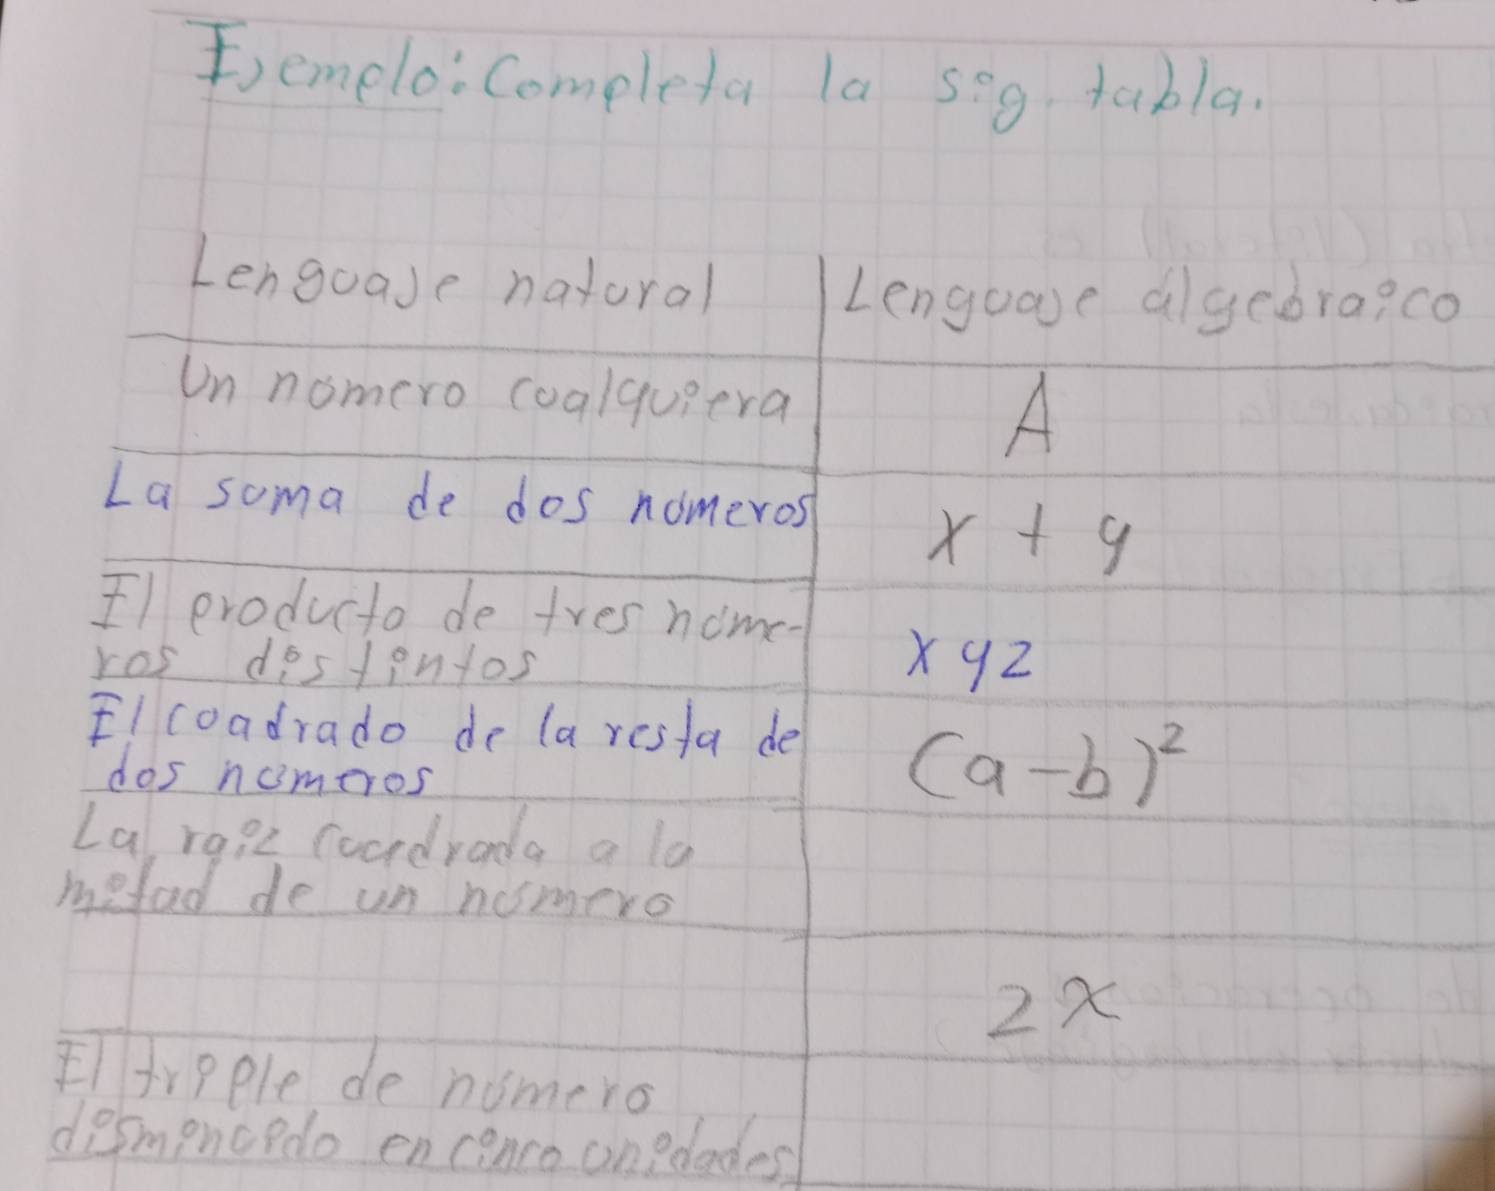 Ejemplo: Completa la sig. tabla.
Lenguaje natural | Lenguaje algebraico
Un número cualquiera | A
La suma de dos números | x + y
El producto de tres núme-
ros distintos | xyz
El cuadrado de la resta de
dos números | (a-b)²
La raiz cuadrada a la
mitad de un número
2x
El triple de número
disminuido en cinco unidades